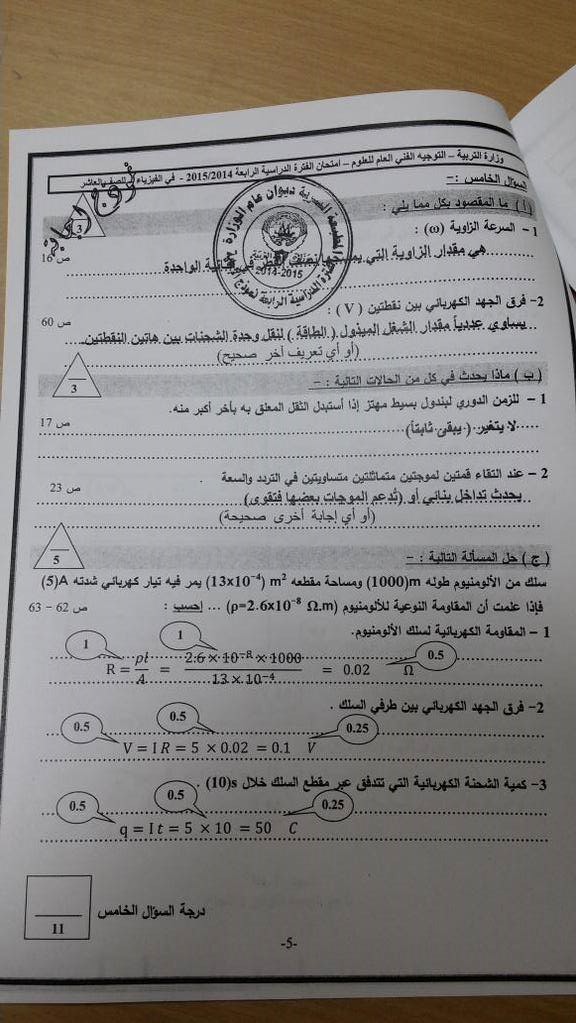 وزارة التربية – التوجيه الفني العام للعلوم – امتحان الفترة الدراسية الرابعة 2015/2014 - في الفيزياء للصف العاشر
السؤال الخامس :-
( أ ) ما المقصود بكل مما يلي :
3
1 - السرعة الزاوية (ω) :
ص 16
هي مقدار الزاوية التي نصف القطر في الواحدة
2014-2015
2- فرق الجهد الكهربائي بين نقطتين ( V ) :
ص 60
يساوي عددياً مقدار الشغل المبذول ( الطاقة ) لنقل وحدة الشحنات بين هاتين النقطتين
(أو أي تعريف آخر صحيح)
( ب ) ماذا يحدث في كل من الحالات التالية : –
3
1 – للزمن الدوري لبندول بسيط مهتز إذا أستبدل الثقل المعلق به بأخر أكبر منه.
ص 17
لا يتغير ( يبقى ثابتاً )
2 – عند التقاء قمتين لموجتين متماثلتين متساويتين في التردد والسعة .
ص 23
يحدث تداخل بنائي أو (تدعم الموجات بعضها فتقوى)
(أو أي إجابة أخرى صحيحة)
5
( ج ) حل المسألة التالية : –
سلك من الألومنيوم طوله m(1000) ومساحة مقطعه m² (13x10⁻⁴) يمر فيه تيار كهربائي شدته A(5)
فإذا علمت أن المقاومة النوعية للألومنيوم (ρ=2.6x10⁻⁸ Ω.m) ... إحسب :
ص 62 – 63
1 – المقاومة الكهربائية لسلك الألومنيوم.
1 1 0.5
R = ρl/A = 2.6 × 10⁻⁸ × 1000 / 13 × 10⁻⁴ = 0.02 Ω
2- فرق الجهد الكهربائي بين طرفي السلك .
0.5 0.5 0.25
V = I R = 5 × 0.02 = 0.1 V
3- كمية الشحنة الكهربائية التي تتدفق عبر مقطع السلك خلال s(10) .
0.5 0.5 0.25
q = I t = 5 × 10 = 50 C
درجة السؤال الخامس
11
-5-